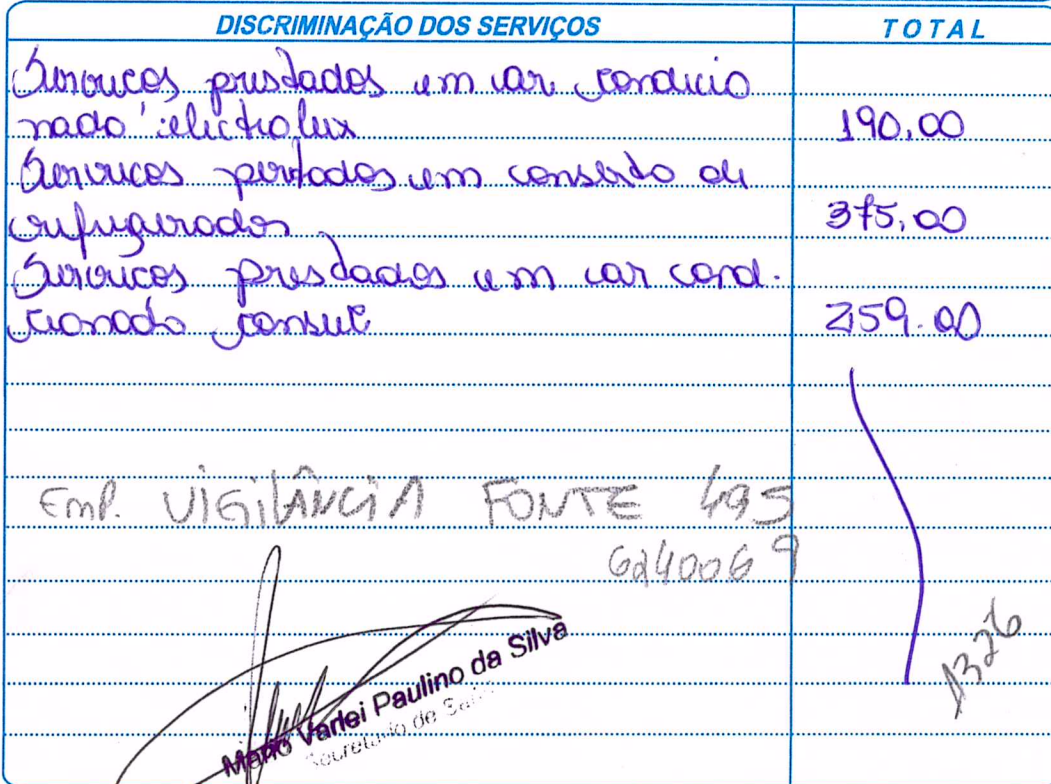 DISCRIMINAÇÃO DOS SERVIÇOS TOTAL
Servicos prestados em ar condicio
nado electrolux 190,00
Servicos prestados em conserto de
refrigerador. 375,00
Servicos prestados em ar cond.
cionado consul 259.00
Emp. VIGILÂNCIA FONTE 495
6240069
1326
Mario Varlei Paulino da Silva
Secretario de Saúde